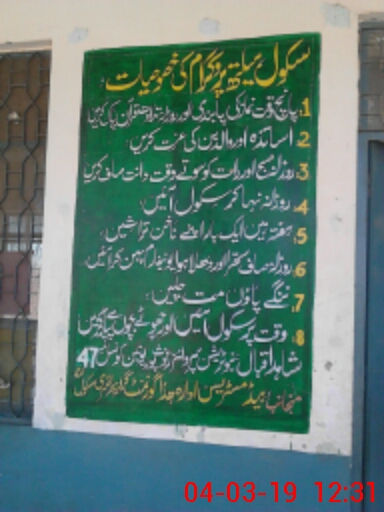 سکول ہیلتھ پروگرام کی خصوصیات
1. پانچ وقت نماز کی پابندی اور روزانہ تلاوت قرآن پاک کریں
2. اساتذہ اور والدین کی عزت کریں
3. روزانہ صبح اور رات کو سوتے وقت دانت صاف کرنا
4. روزانہ نہا کر سکول آئیں
5. ہفتہ میں ایک بار اپنے ناخن تراشیں
6. روزانہ صاف ستھرا اور دھلا ہوا یونیفارم پہن کر آئیں
7. ننگے پاؤں مت چلیں
8. وقت پر سکول آئیں اور
شاہد اقبال نیوٹریشن سپروائزر یونین کونسل 47
منجانب ہیڈ مسٹریس ادارہ ہذا گورنمنٹ گرلز پرائمری سکول
04-03-19 12:31